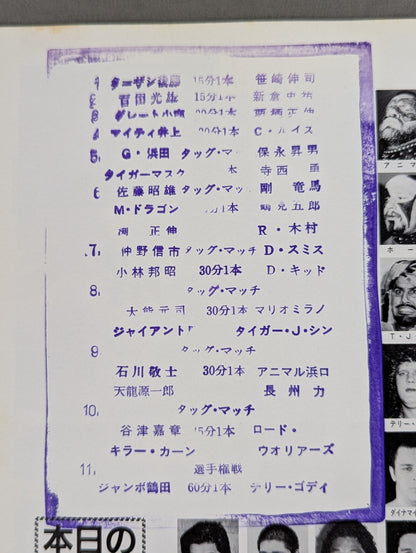 1 ターザン後藤 15分1本 笹崎伸司
2 百田光雄 15分1本 新倉史祐
3 グレート小鹿 20分1本 栗栖正伸
4 マイティ井上 20分1本 C・ルイス
5. G・浜田 タッグ・マッチ 保永昇男
タイガーマスク 本 寺西 勇
6 佐藤昭雄 タッグ・マッ 剛 竜馬
M・ドラゴン 分1本 鶴見五郎
渕 正伸 R・木村
7. 仲野信市 タッグ・マッチ D・スミス
小林邦昭 30分1本 D・キッド
8. タッグ・マッチ
大熊元司 30分1本 マリオミラノ
ジャイアント タイガー・J・シン
9 タッグ・マッチ
石川敬士 30分1本 アニマル浜口
天龍源一郎 長州 力
10. タッグ・マッチ
谷津嘉章 15分1本 ロード・
キラー・カーン ウオリアーズ
11. 選手権戦
ジャンボ鶴田 60分1本 テリー・ゴディ
アニマ
ホー
T・J
テリー・
ダイナマイ
本日の